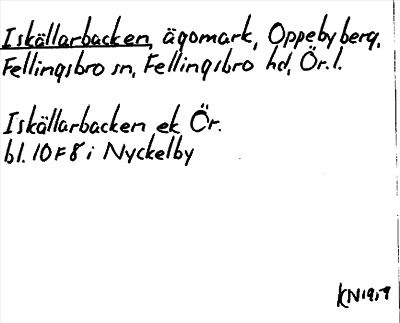 Iskällarbacken, ägomark, Oppeby berg,
Fellingsbro sn, Fellingsbro hd, Ör. l.
Iskällarbacken ek Ör.
bl. 10 F 8 i Nyckelby